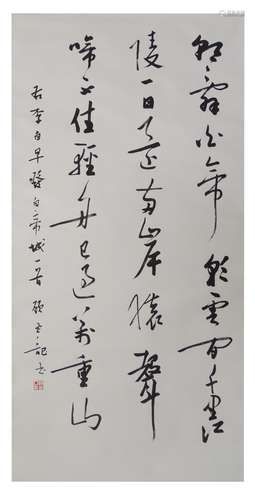 朝辭白帝彩雲間千里江
陵一日還兩岸猿聲
啼不住輕舟已過萬重山
右李白早發白帝城一首